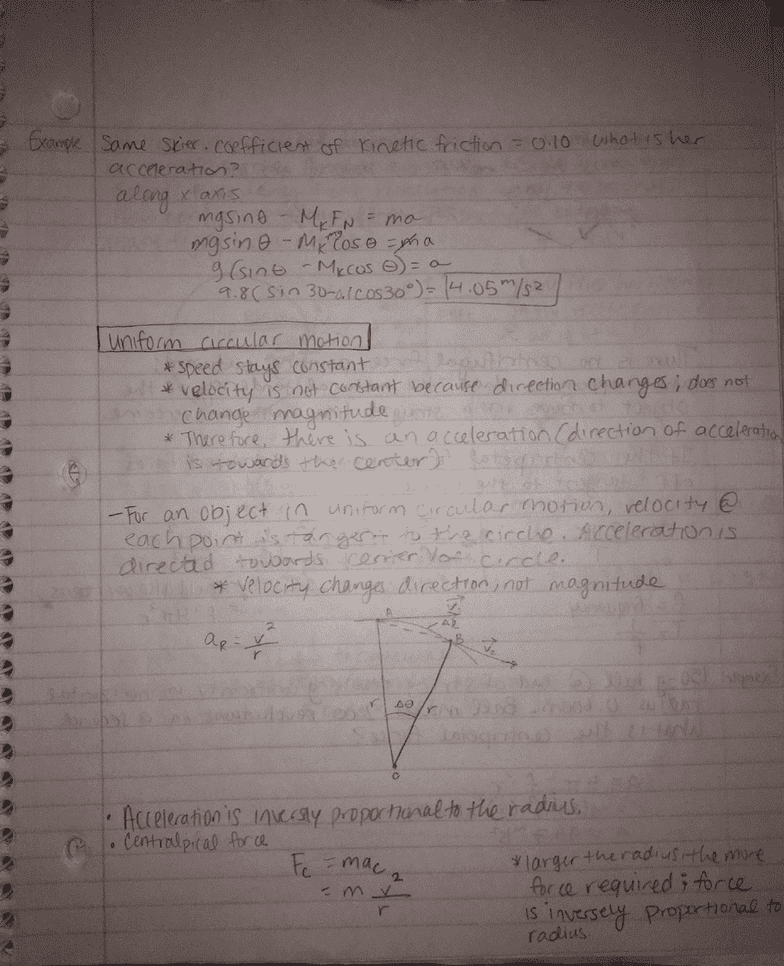 Example Same skier. coefficient of kinetic friction = 0.10 what is her
acceleration?
along x axis
mgsinθ - MkFN = ma
mgsinθ - Mk mg cosθ = ma
g(sinθ - Mkcosθ) = a
9.8(sin 30-0.1cos30°) = 4.05 m/s²
uniform circular motion
* speed stays constant
* velocity is not constant because direction changes; does not
change magnitude
* Therefore, there is an acceleration (direction of acceleration
is towards the center)
- For an object in uniform circular motion, velocity @
each point is tangent to the circle. Acceleration is
directed towards center of circle.
* velocity changes direction, not magnitude
A V₁
Δl
B V₂
aR = v²/r
r Δθ r
O
• Acceleration is inversly proportional to the radius.
• Centralpical force
Fc = mac
= m v²/r
* larger the radius, the more
force required; force
is inversely proportional to
radius